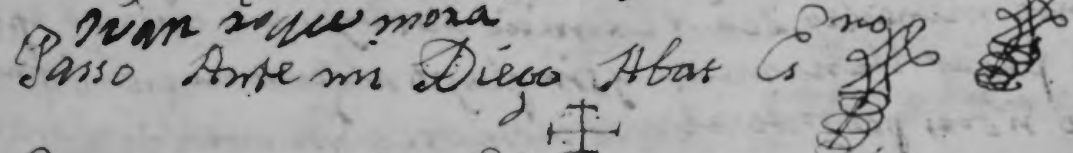 Juan roque mora
Passo Ante mi Diego Abat Esno